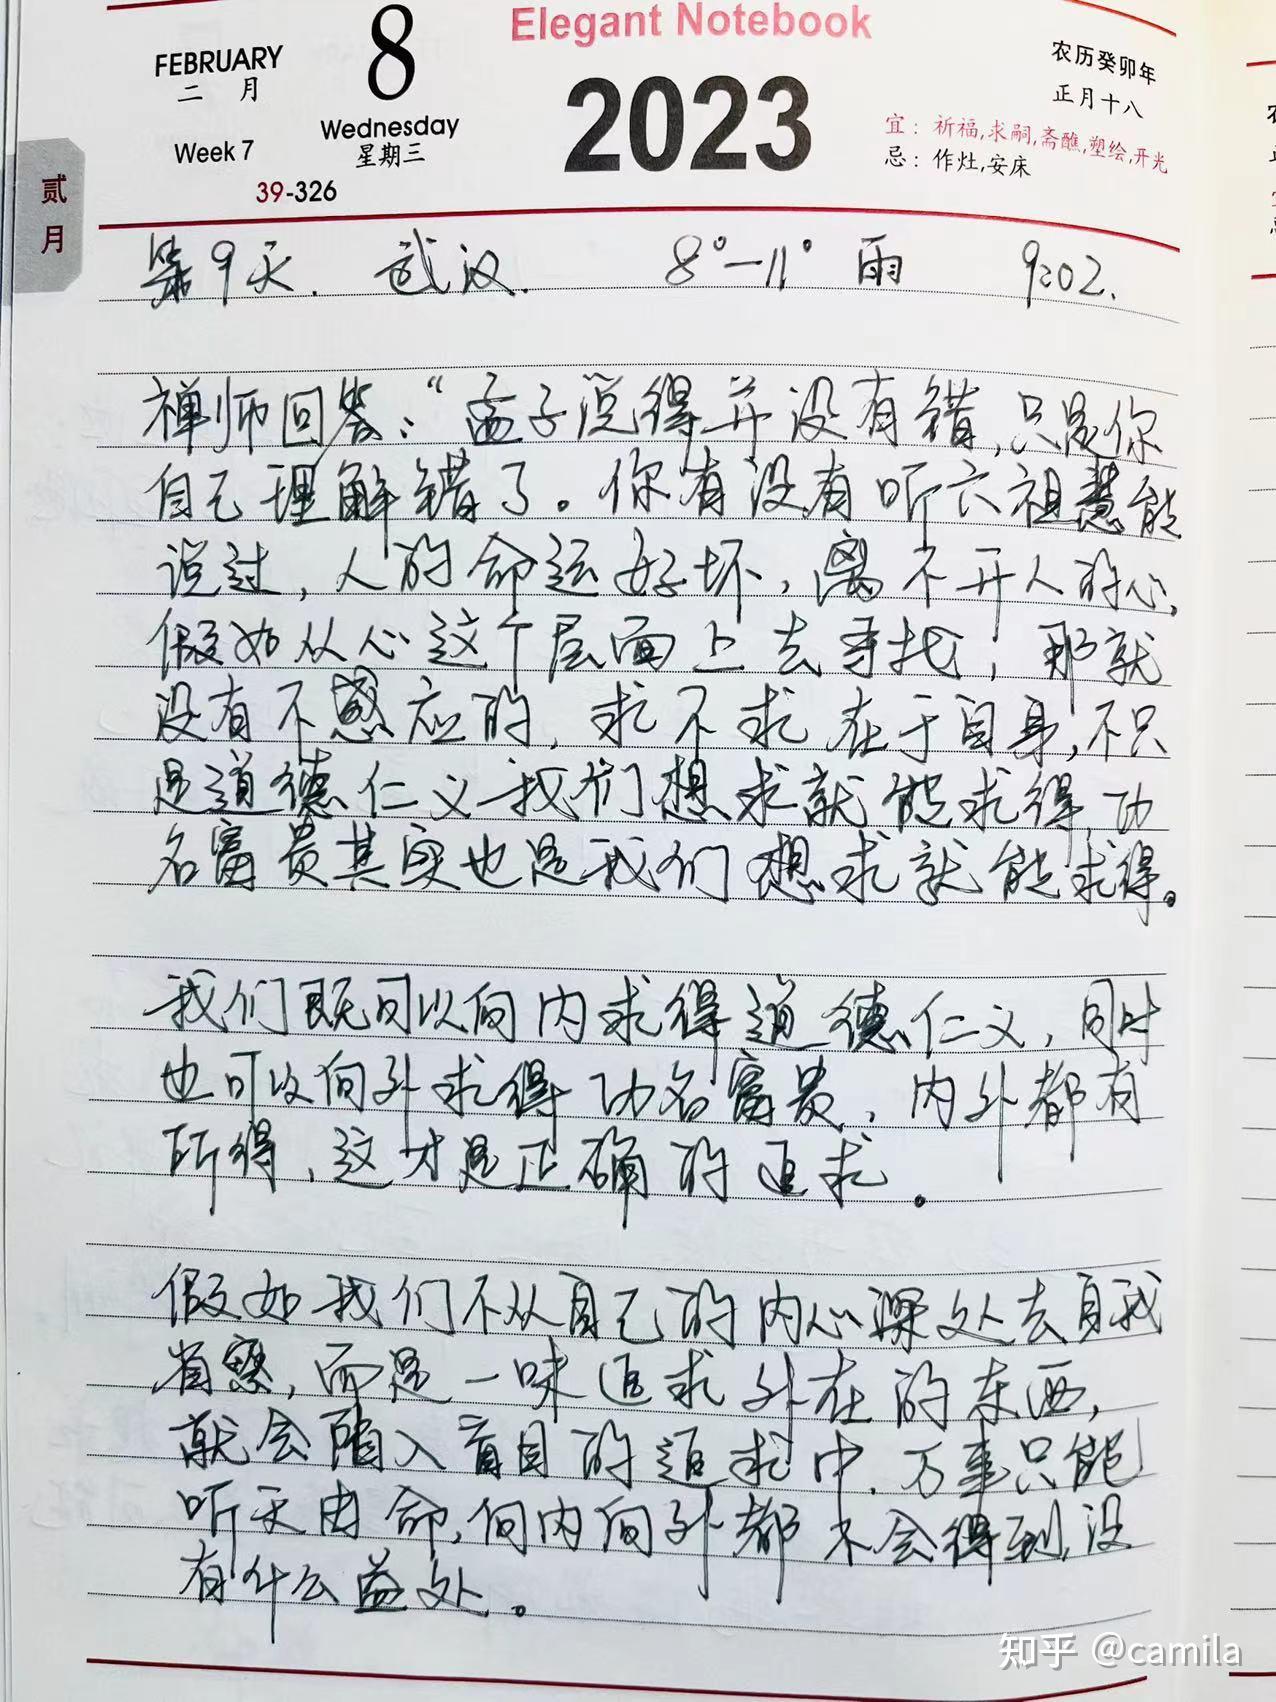 Elegant Notebook
FEBRUARY
二 月
8
Wednesday
星期三
Week 7
39-326
2023
农历癸卯年
正月十八
宜：祈福,求嗣,斋醮,塑绘,开光
忌：作灶,安床
贰月
第9天. 武汉. 8°-11° 雨 9:02.
禅师回答：“孟子说得并没有错,只是你
自己理解错了。你有没有听六祖慧能
说过,人的命运好坏,离不开人的心,
假如从心这个层面上去寻找,那就
没有不感应的,求不求在于自身,不只
是道德仁义我们想求就能求得,功
名富贵其实也是我们想求就能求得。
我们既可以向内求得道德仁义,同时
也可以向外求得功名富贵,内外都有
所得,这才是正确的追求.
假如我们不从自己的内心深处去自我
省察,而是一味追求外在的东西,
就会陷入盲目的追求中.万事只能
听天由命,向内向外都不会得到,没
有什么益处。
知乎 @camila